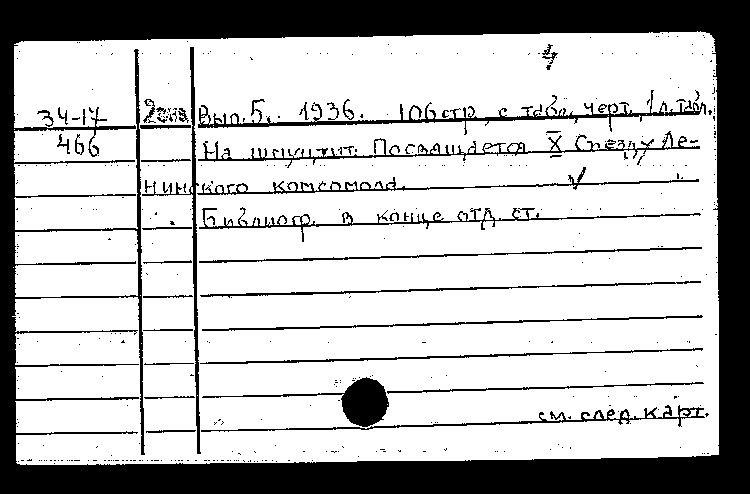 4
34-17 2 экз Вып. 5. 1936. 106 стр. с табл., черт., 1 л. табл.
466 На шмуцтит. Посвящается X Съезду Ле-
нинского комсомола.
Библиогр. в конце отд. ст.
см. след. карт.